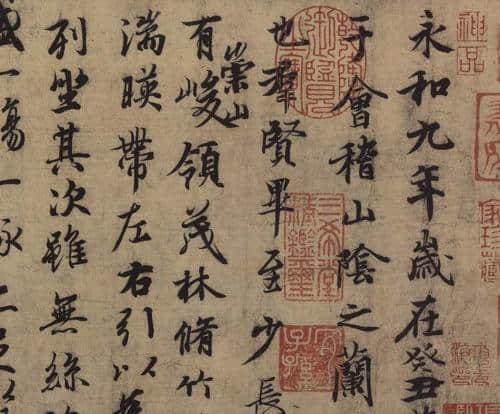 神品
永和九年歲在癸丑
于會稽山陰之蘭
也羣賢畢至少長
有崇山峻領茂林脩竹
湍暎帶左右引以
列坐其次雖無絲
一觴一
三希堂精鑑璽
宜子孫